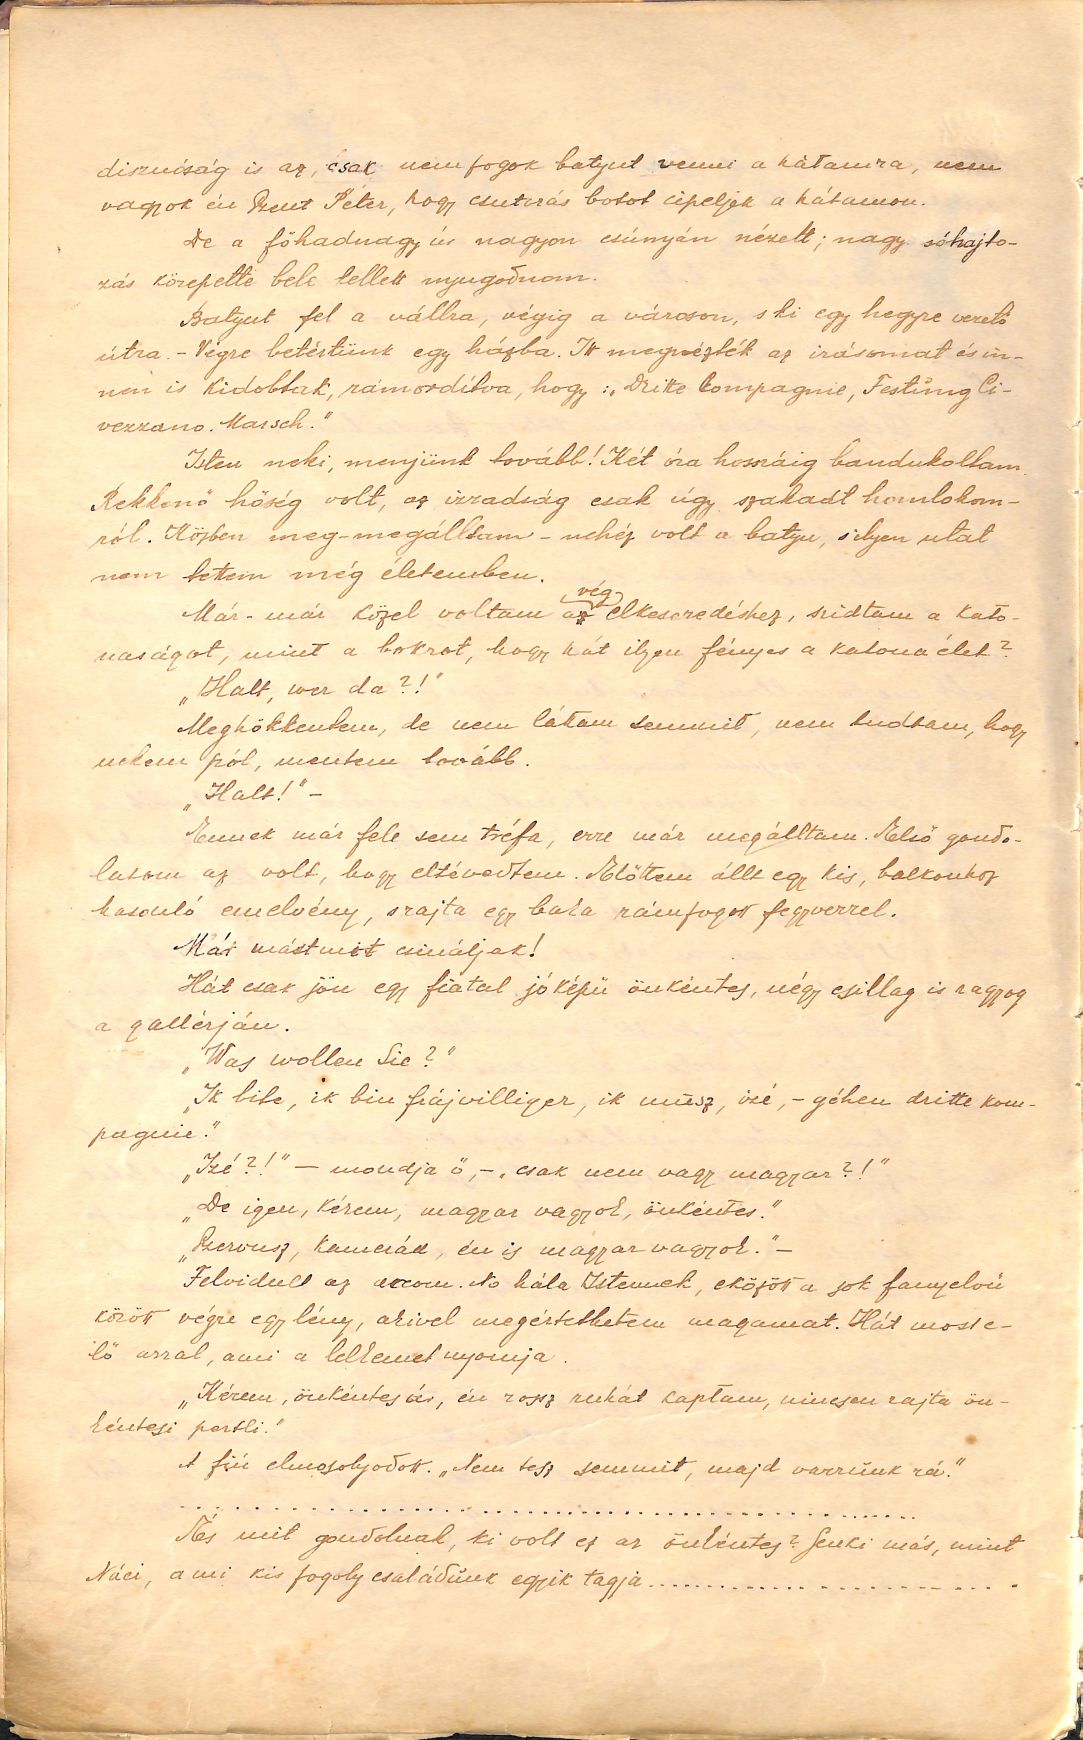 disznóság is az, csak nem fogok batyut venni a hátamra, nem
vagyok én Szent Péter, hogy csutorás botot cipeljek a hátamon.
De a főhadnagy úr nagyon csúnyán nézett; nagy sóhajto-
zás közepette bele kellett nyugodnom.
Batyut fel a vállra, végig a városon, s ki egy hegyre vezető
útra. - Végre betértünk egy házba. Itt megnézték az irásomat és in-
nen is kidobtak, rámordítva, hogy: „Dritte Compagnie, Festung Ci-
vezzano. Marsch."
Isten neki, menjünk tovább! Két óra hosszáig bandukoltam.
Rekkenő hőség volt, az izzadság csak úgy szakadt homlokom-
ról. Közben meg-megálltam - nehéz volt a batyu, s ilyen utat
nem tettem még életemben.
Már-már közel voltam az vég elkeseredéshez, szidtam a kato-
naságot, mint a bokrot, hogy hát ilyen fényes a katona élet?
„Halt, wer da?!"
Meghökkentem, de nem láttam semmit, nem tudtam, hogy
nekem szól, mentem tovább.
„Halt!" -
Ennek már fele sem tréfa, erre már megálltam. Első gondo-
latom az volt, hogy eltévedtem. Előttem állt egy kis, balkonhoz
hasonló emelvény, s rajta egy baka rámfogott fegyverrel.
Már most mit csináljak!
Hát csak jön egy fiatal jóképü önkéntes, négy csillag is ragyog
a gallérján.
„Was wollen Sie?"
„Ik bite, ik bin frájvilliger, ik musz, izé, - géhen dritte kom-
pagnie."
„Izé?!" - mondja ő, - „csak nem vagy magyar?!"
„De igen, kérem, magyar vagyok, önkéntes."
„Szervusz, kamerád, én is magyar vagyok." -
Felvidult az arcom. No hála Istennek, eközött a sok fanyelvü
között végre egy lény, akivel megértethetem magamat. Hát most e-
lő azzal, ami a lelkemet nyomja.
„Kérem, önkéntes úr, én rossz ruhát kaptam, nincsen rajta ön-
kéntesi portli."
A fiú elmosolyodott. „Nem tesz semmit, majd varrunk rá."
................................................
És mit gondolnak, ki volt ez az önkéntes? Senki más, mint
Náci, a mi kis fogoly családunk egyik tagja........................